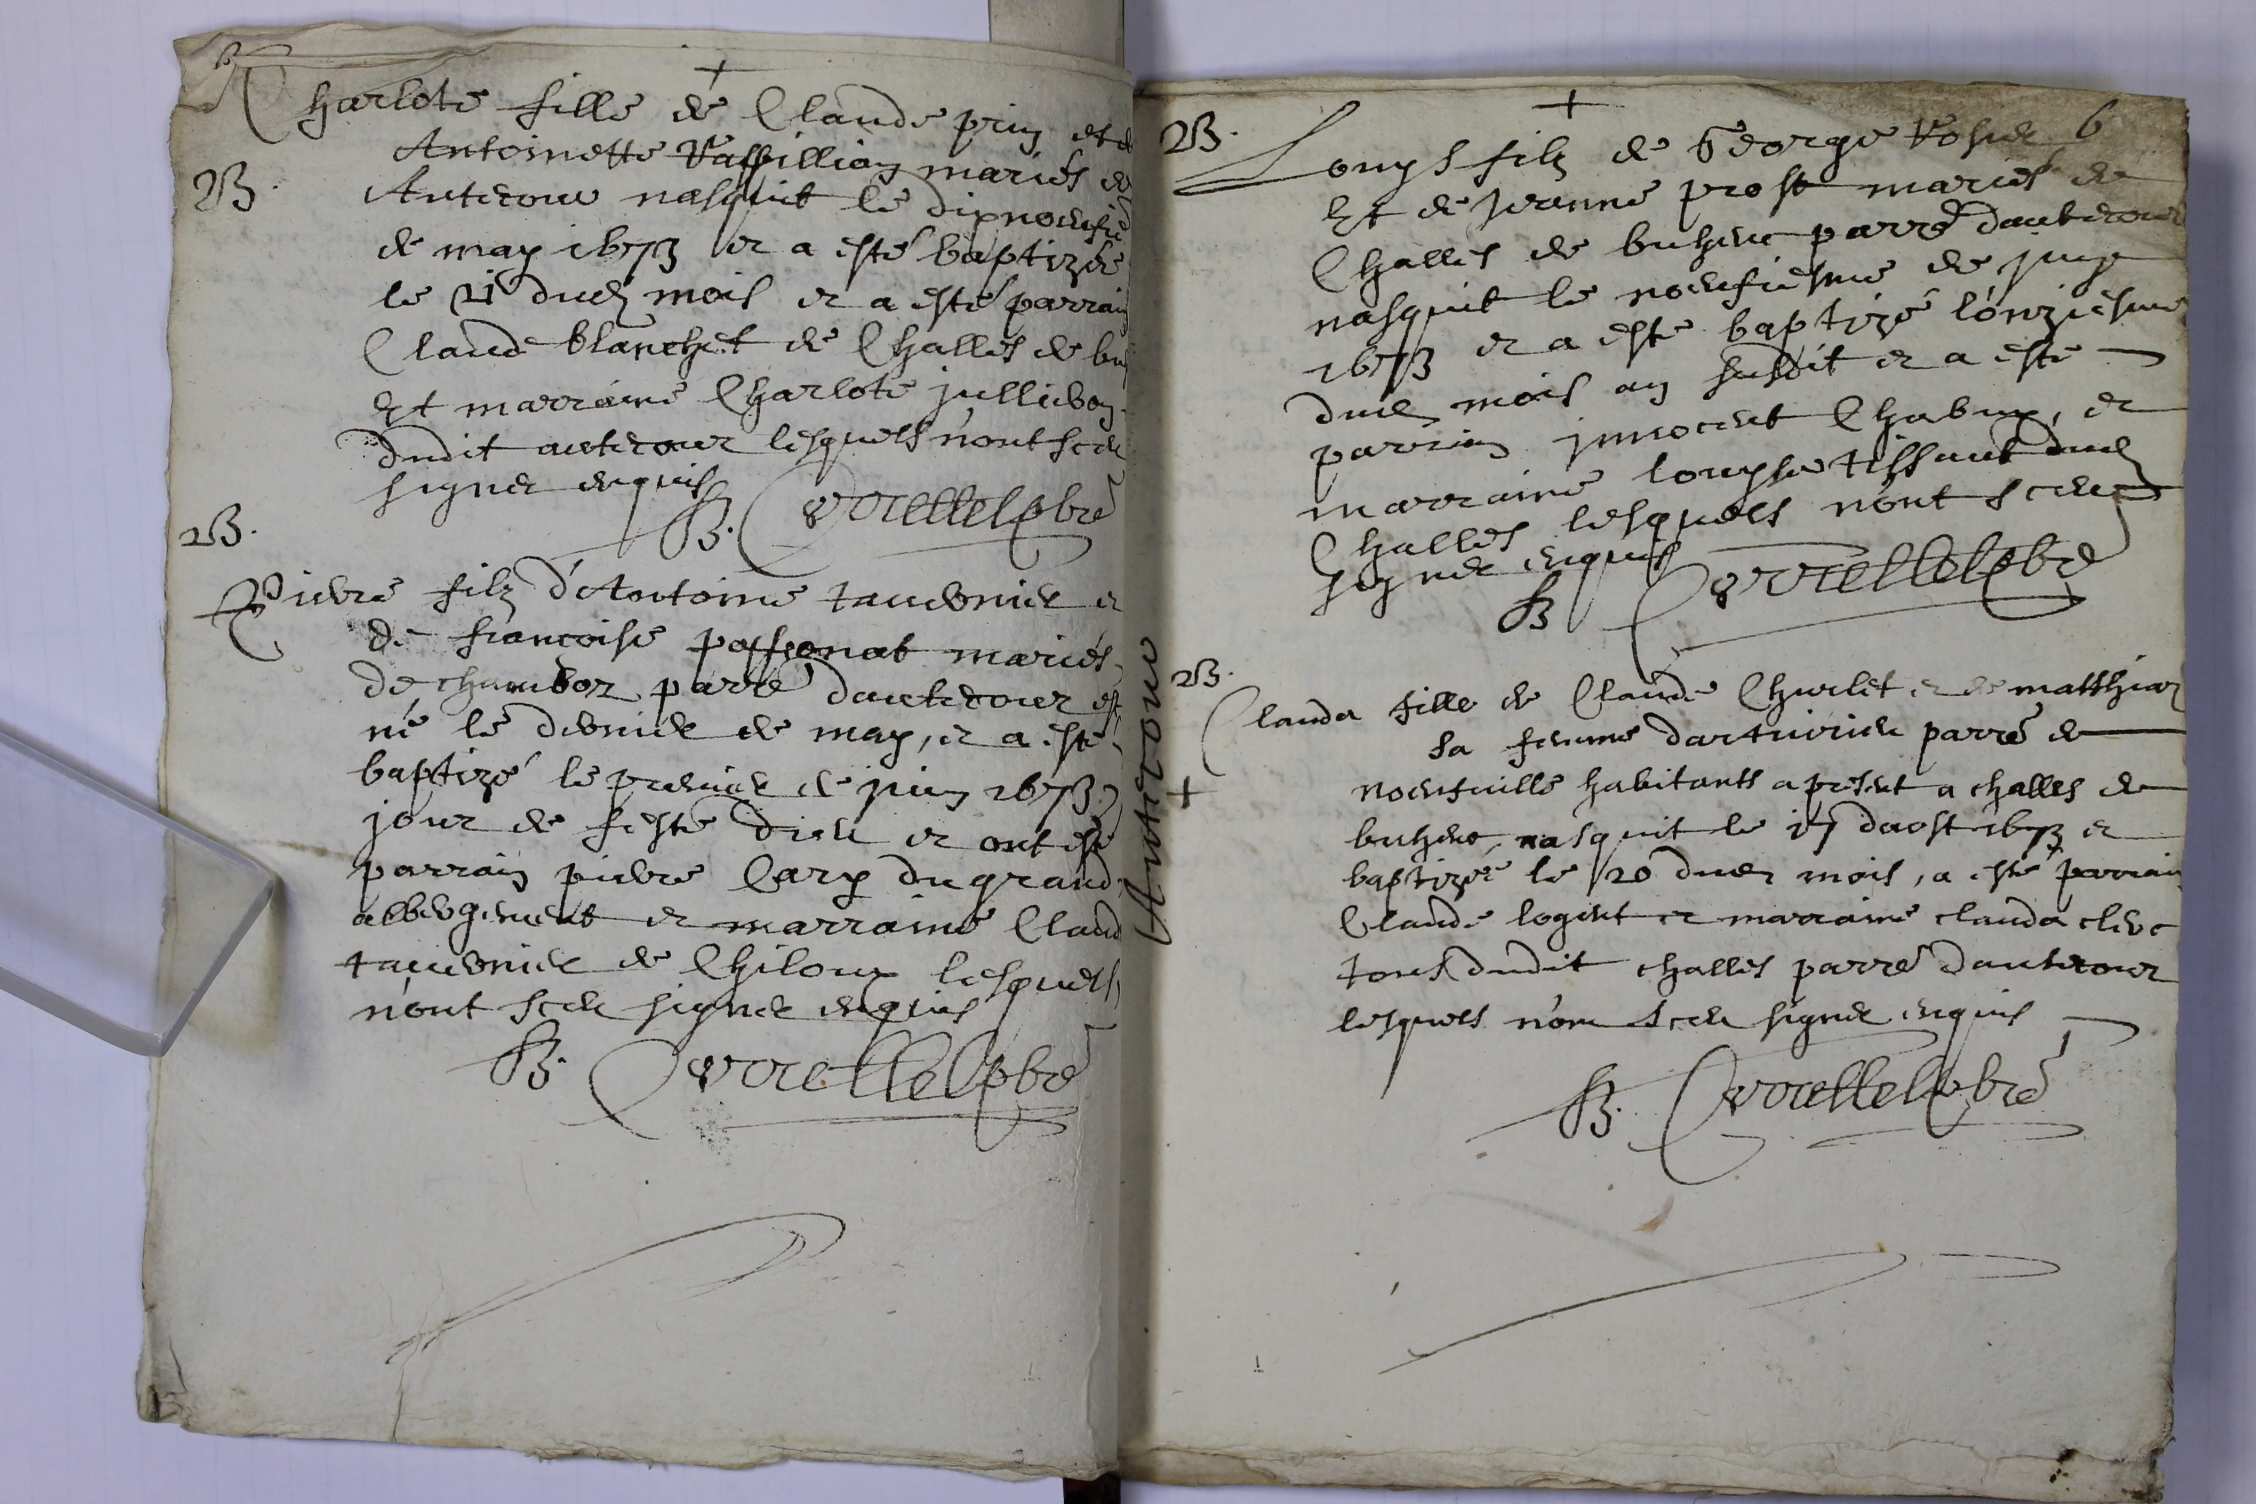 Charlote fille de Claude prin et de
Antoinette Vaspillion mariés de
B.
Autecour nasquit le dixnoeufie
de may 1673 et a esté baptizée
le 21 dud mois et a esté parrain
Claude blanchet de Challes de bu
Et marraine Charlote jullieron
dudit autecour lesquels n'ont sceu
signer enquis
B. Cevorelles pbre
B.
Pierre filz d'Antoine tavernier et
de francoise passeonat mariés
de chambor parre d'autecour est
né le dernier de may, et a esté
baptizé le premier de juin 1673
jour de feste dieu et ont esté
parrain pierre Cary du grand
albergement et marraine Claud
tavernier de Chiloup lesquels
n'ont sceu signer enquis
B. pbre
Autecour
6
B.
Louys filz de George Rosier
Et de jeanne prost mariés de
Challes de buhene parre d'autecour
nasquit le noeufiesme de juin
1673 et a esté baptizé l'onziesme
dud mois an susdit et a esté
parrain innocent Chabux, et
marraine louyse tissant dud
Challes lesquels n'ont sceu
signer enquis
B pbre
B.
Clauda fille de Claude Churlet et de matthiaz
sa femme d'arturieu parre de
noeufville habitants a present a challes de
buhene, nasquit le 17 d'aost 1673 et
baptizée le 20 dud mois, a esté parrain
Claude logent et marraine clauda clerc
tous dudit challes parre d'autecour
lesquels n'ont sceu signer enquis
B. pbre